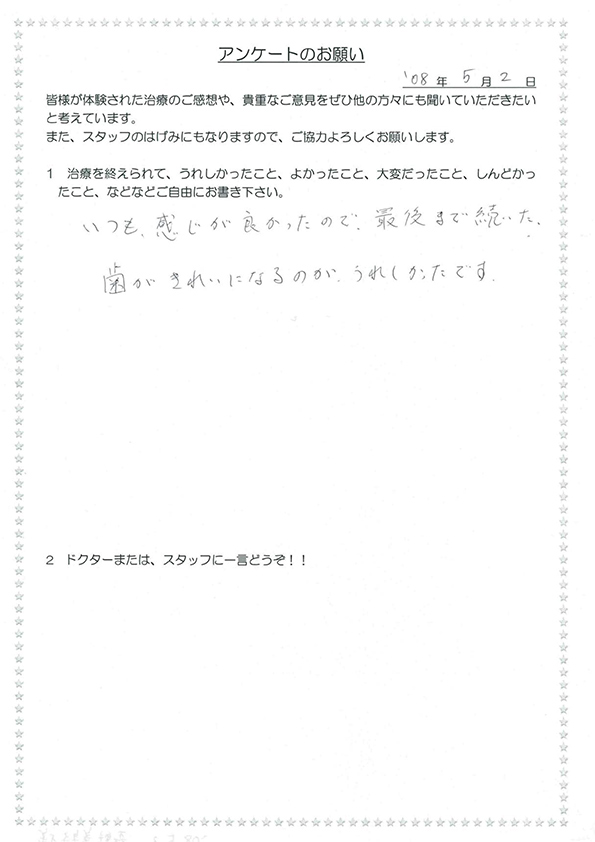 アンケートのお願い
'08 年 5 月 2 日
皆様が体験された治療のご感想や、貴重なご意見をぜひ他の方々にも聞いていただきたい
と考えています。
また、スタッフのはげみにもなりますので、ご協力よろしくお願いします。
1 治療を終えられて、うれしかったこと、よかったこと、大変だったこと、しんどかっ
たこと、などなどご自由にお書き下さい。
いつも、感じが良かったので、最後まで続いた、
歯がきれいになるのが、うれしかたです。
2 ドクターまたは、スタッフに一言どうぞ！！